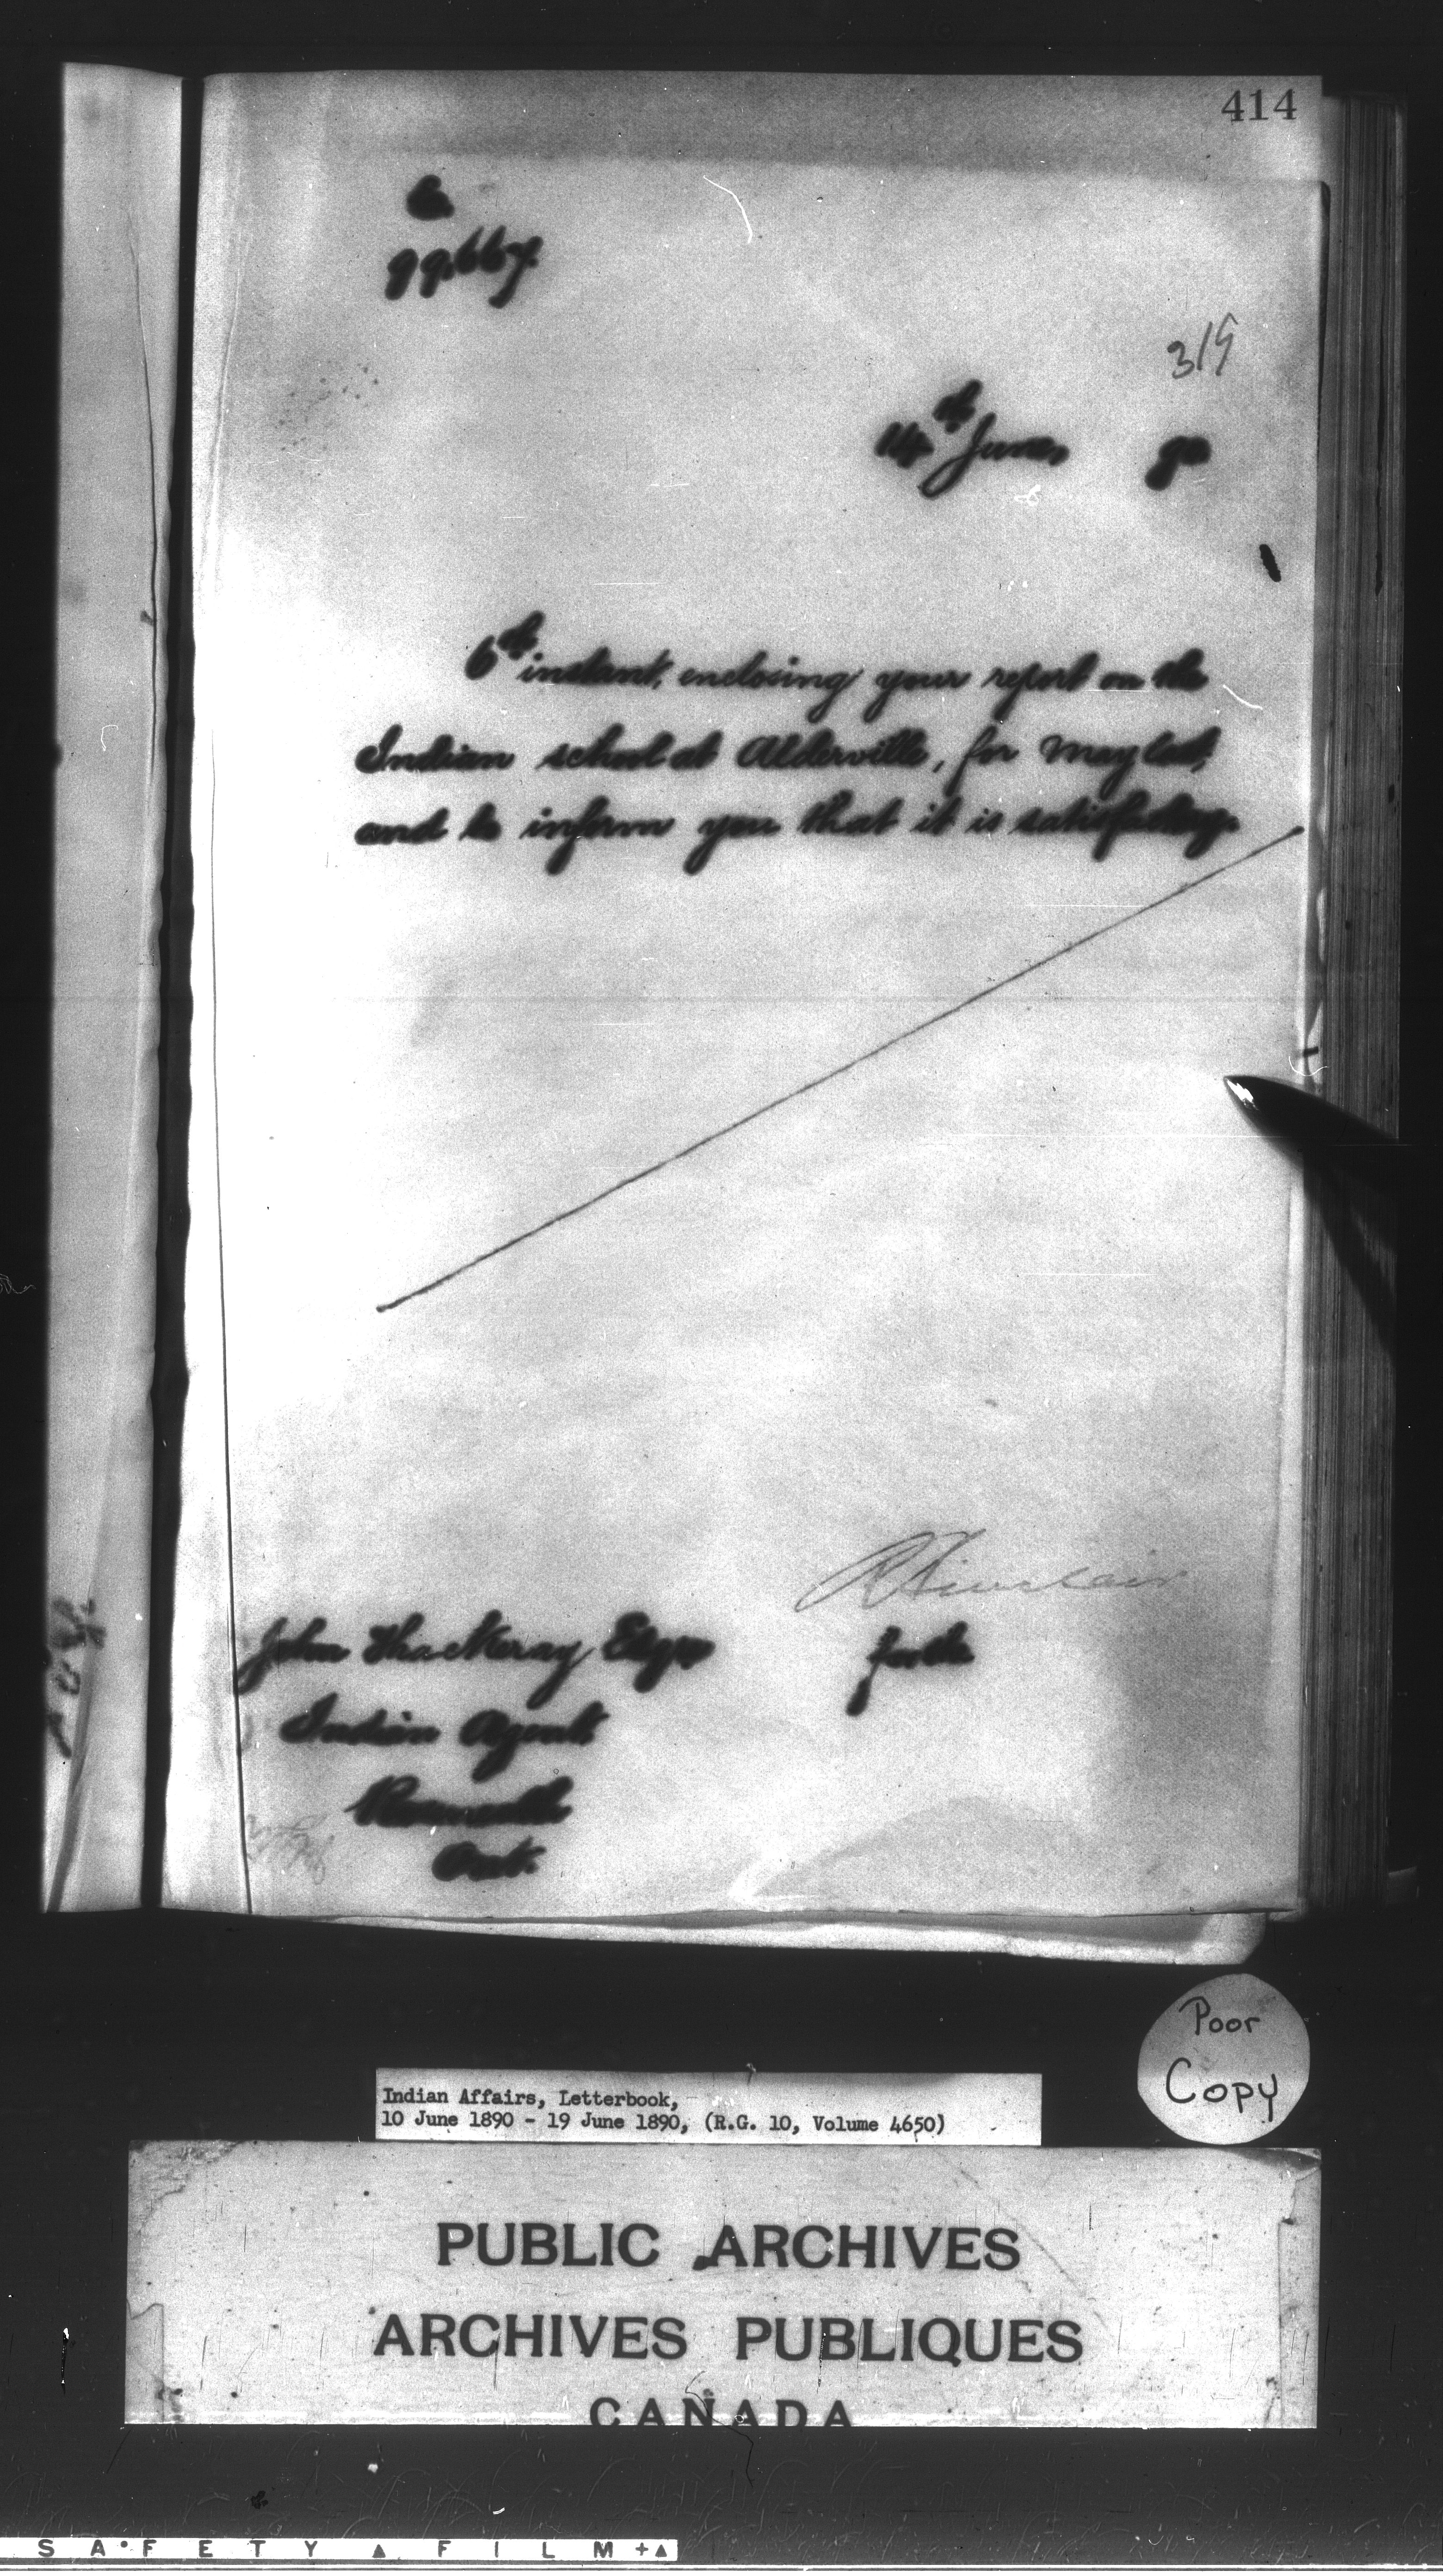 414
99,667.
319
14th June, 90
6th instant, enclosing your report on the
Indian school at Alderville, for May last,
and to inform you that it is satisfactory.
R Sinclair
John Thackeray Esqre
for the
Indian Agent
Roseneath
Ont.
Poor
Copy
Indian Affairs, Letterbook,
10 June 1890 - 19 June 1890, (R.G. 10, Volume 4650)
PUBLIC ARCHIVES
ARCHIVES PUBLIQUES
CANADA
SAFETY FILM